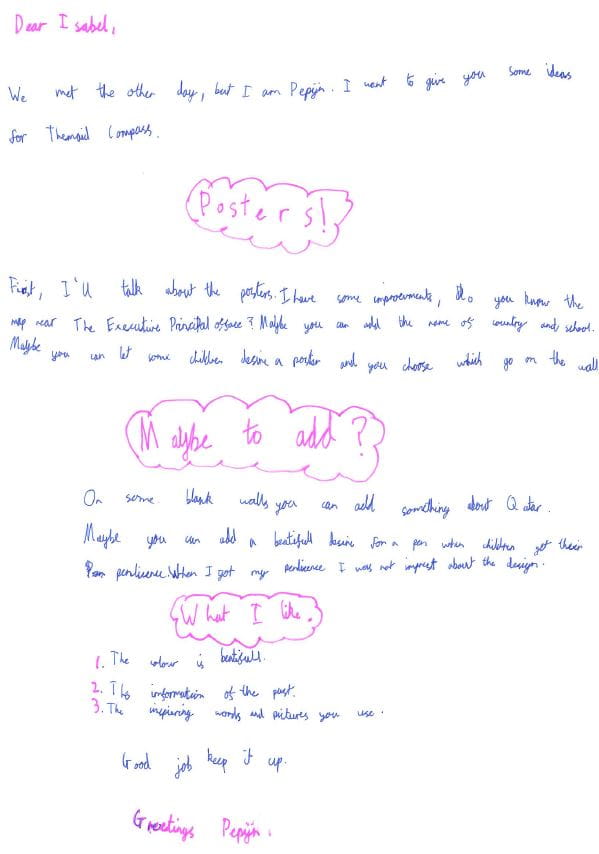 Dear Isabel,
We met the other day, but I am Pepijn. I want to give you some ideas
for Themaid Compass.
Posters!
First, I'll talk about the posters. I have some improvements, Do you know the
map near The Executive Principal offace? Maybe you can add the name of country and school.
Maybe you can let some children desine a poster and you choose which go on the wall
Maybe to add?
On some blank walls you can add something about Qatar.
Maybe you can add a beatifull desine for a pen when children get their
penlicence. When I got my penlicence I was not imprest about the design.
What I like.
1. The colour is beatifull.
2. The information of the past.
3. The inspiering words and pictures you use.
Good job keep it up.
Greetings Pepijn.